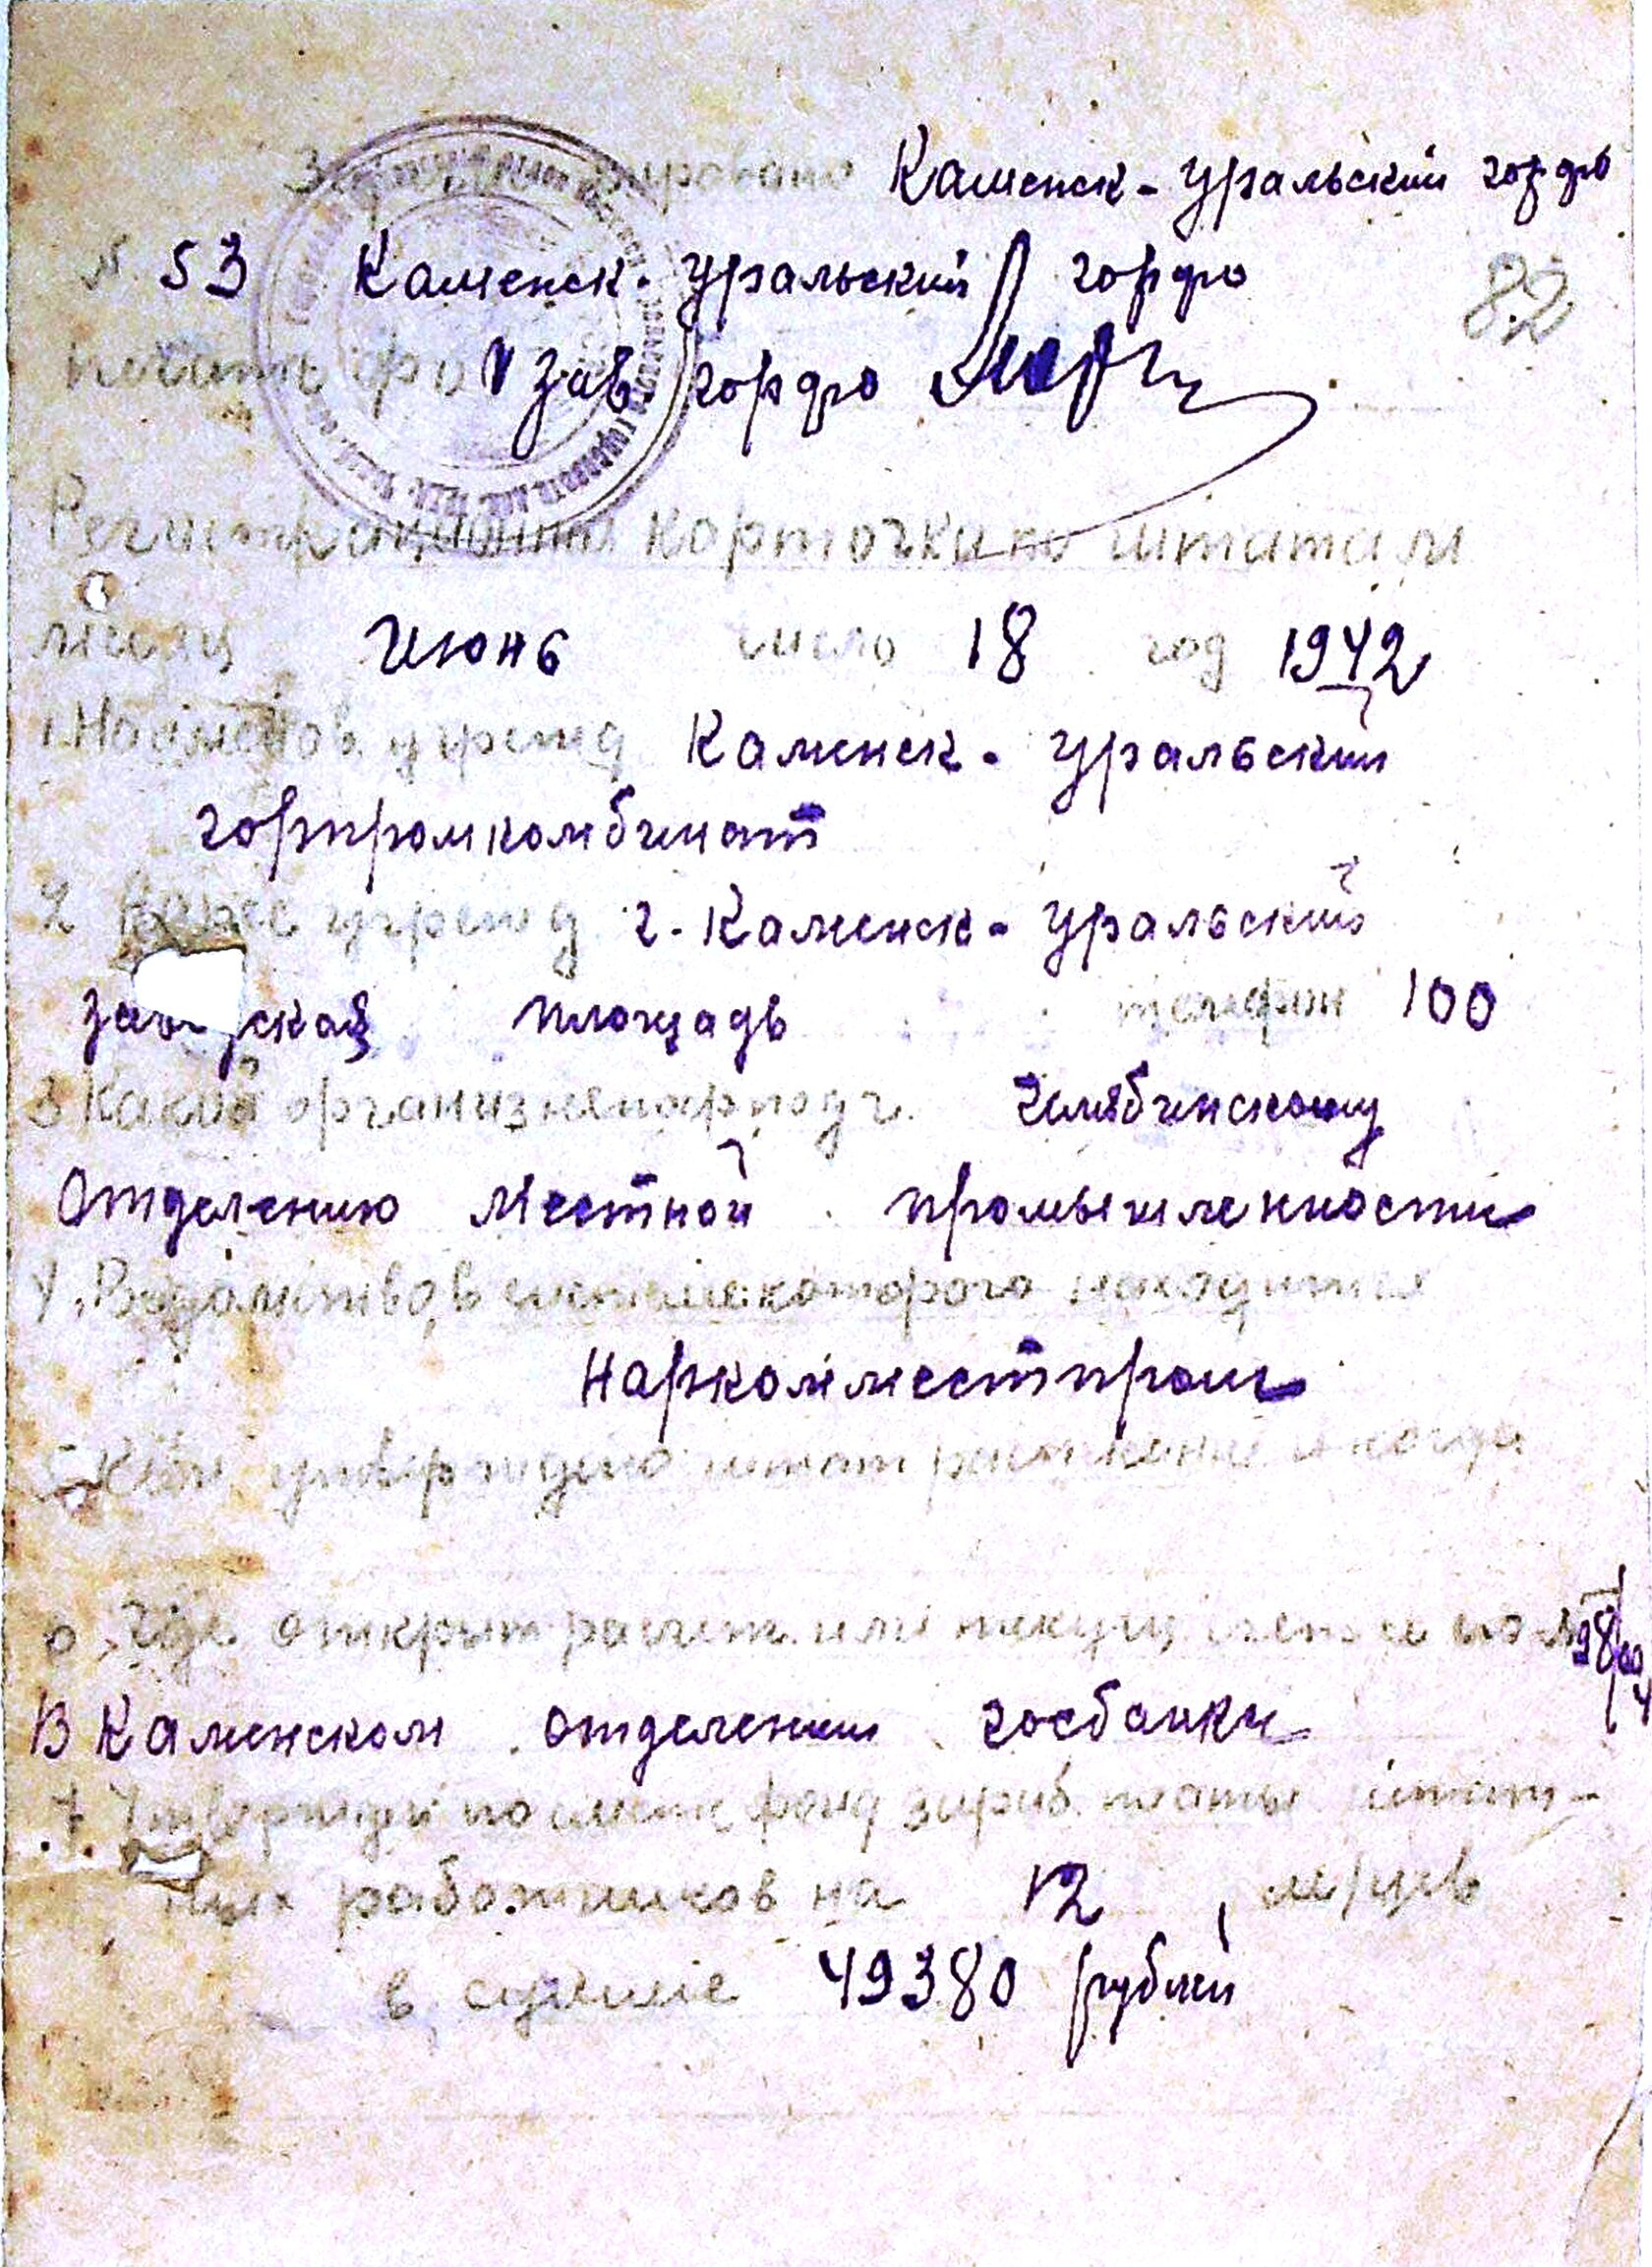 Каменск-Уральский горфо
№ 53 Каменск-Уральский горфо
82
печать фо зав. горфо
Регистрационная карточка по штатам
месяц Июнь число 18 год 1942
1. Наименов. учрежд Каменск-Уральский
горпромкомбинат
2 Адрес учрежд г. Каменск-Уральский
площадь телефон 100
3 Какой организ непоср подч. Челябинскому
Отделению Местной промышленности
4. Ведомство, в системе которого находится
Наркомместпром
5 Кем утверждено штат расписание и когда
6. Где открыт расчетн. или текущ счет
В Каменском отделении госбанки
7. Утвержден по смете фонд зараб. платы штат-
ных работников на 12 м/цев
в сумме 49380 рублей